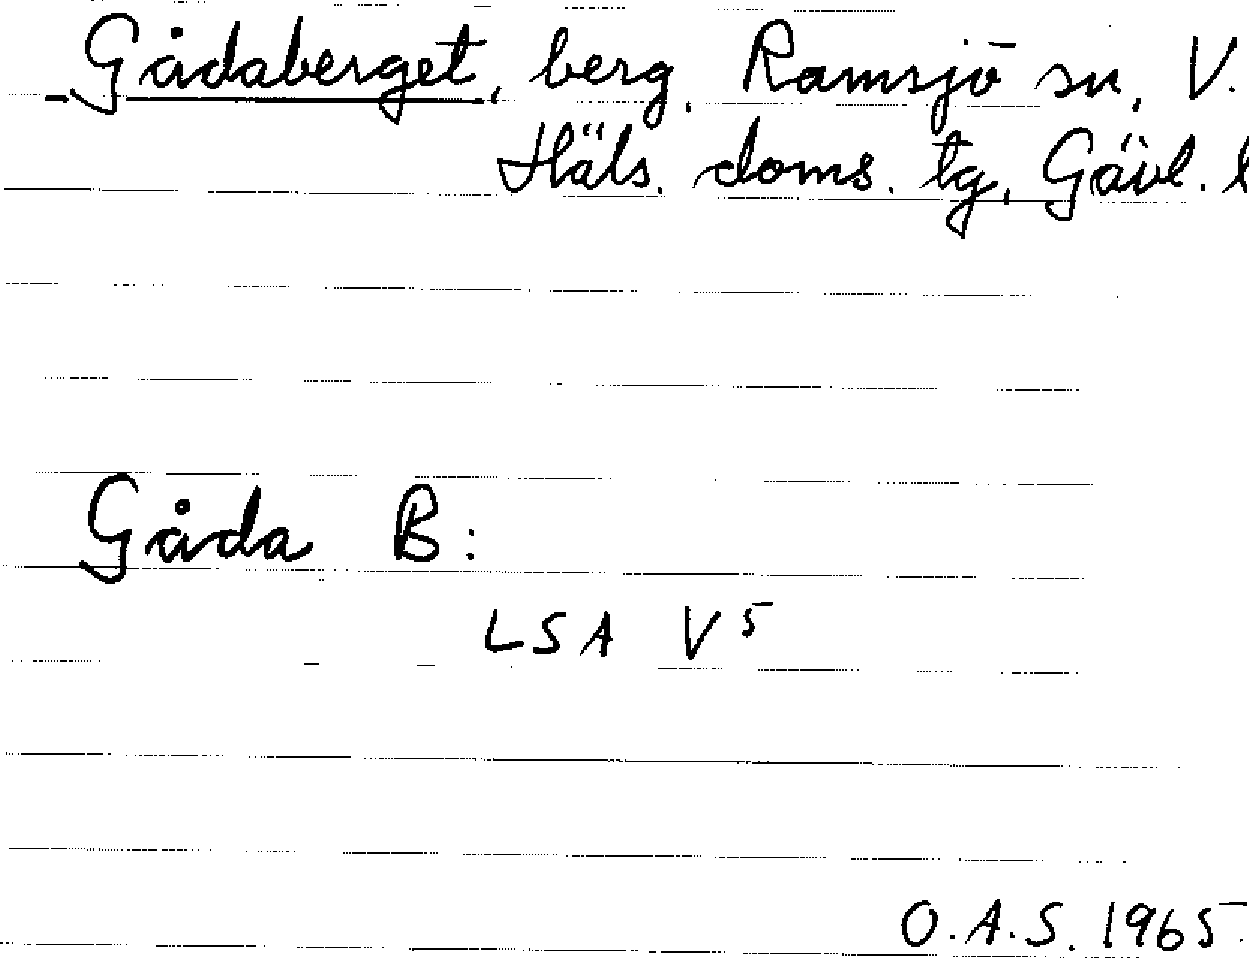 Gådaberget, berg, Ramsjö sn, V.
Häls. doms. tg, Gävl. l
Gåda B:
LSA V5
O.A.S. 1965.